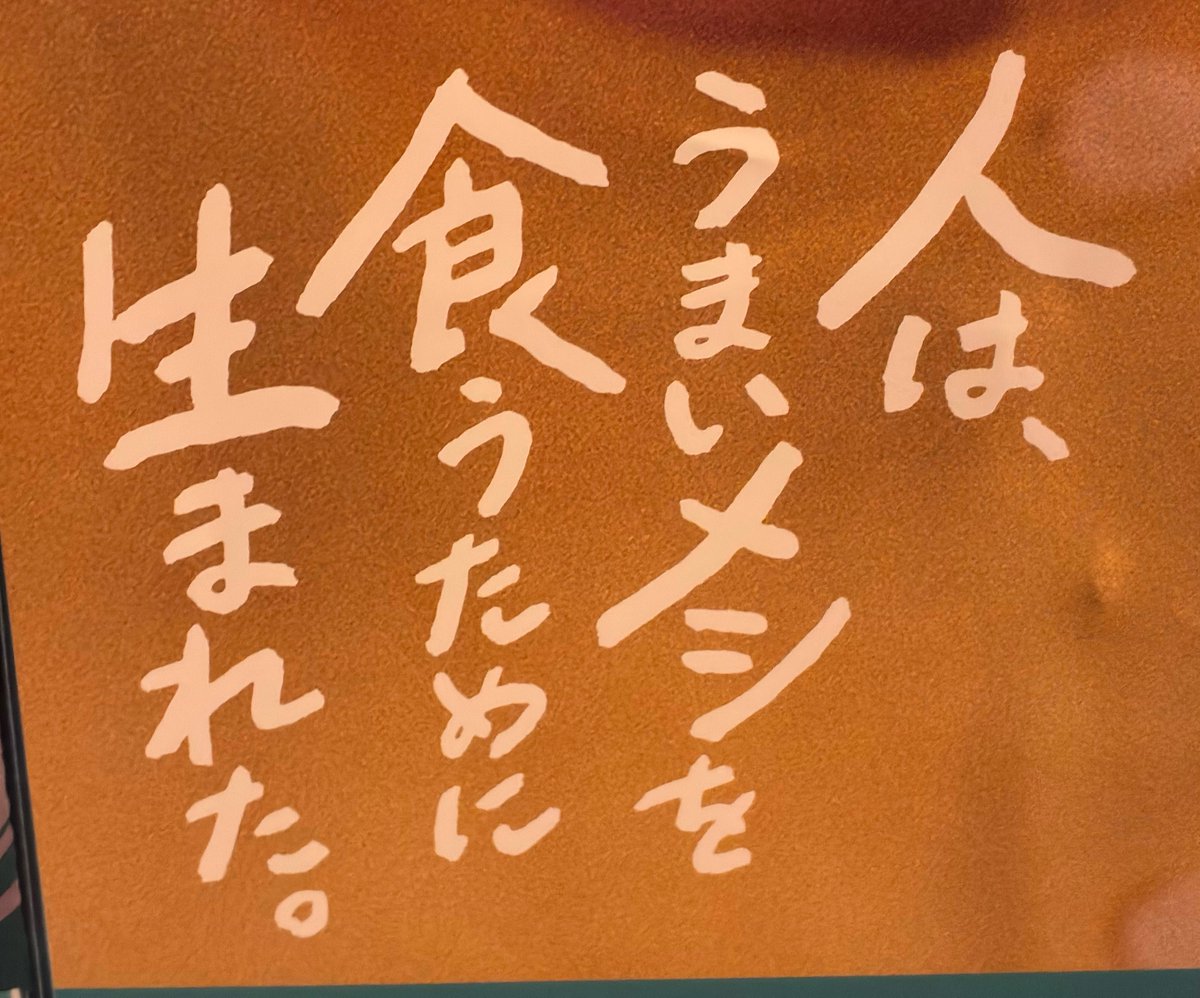 人は、
うまいメシを
食うために
生まれた。